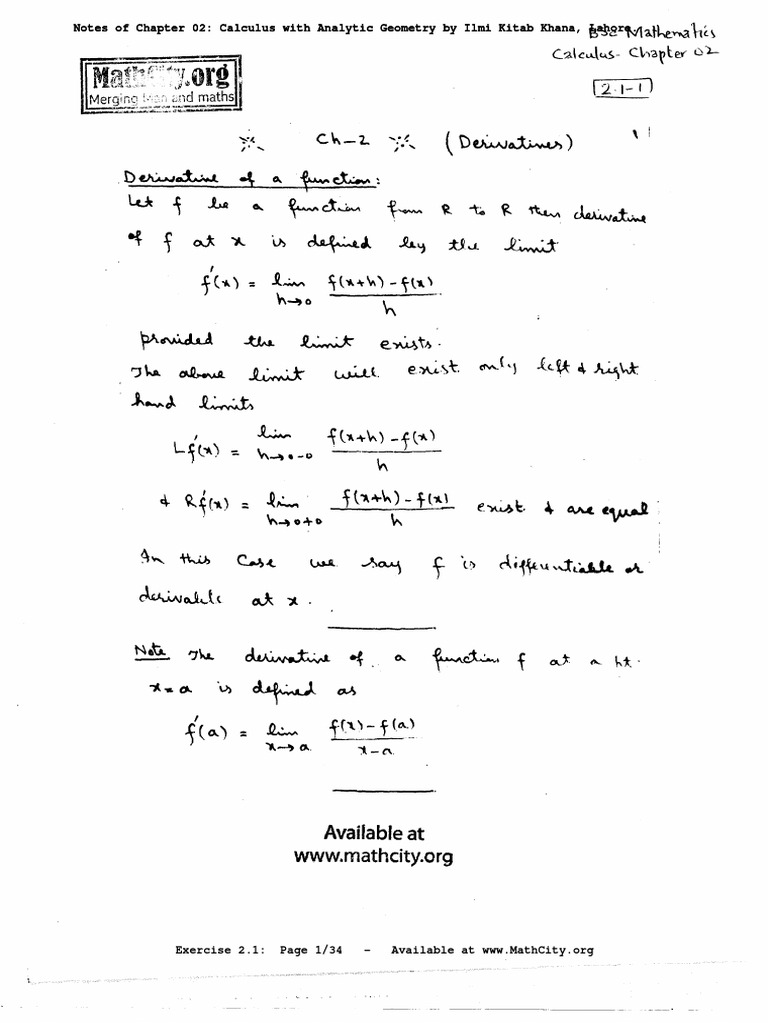 Notes of Chapter 02: Calculus with Analytic Geometry by Ilmi Kitab Khana, Lahore
BSc Mathematics
Calculus- Chapter 02
MathCity.org
Merging man and maths
2.1-1
Ch-2 (Derivatines)
Derivative of a function:
Let f be a function from R to R then derivative
of f at x is defined by the limit
f'(x) = lim h→0 f(x+h)-f(x) / h
provided the limit exists.
The above limit will exist only left & right
hand limits
Lf'(x) = lim h→0-0 f(x+h)-f(x) / h
& Rf'(x) = lim h→0+0 f(x+h)-f(x) / h exist & are equal
In this Case we say f is differentiable or
derivable at x.
Note The derivative of a function f at a pt.
x=a is defined as
f'(a) = lim x→a f(x)-f(a) / x-a
Available at
www.mathcity.org
Exercise 2.1: Page 1/34 - Available at www.MathCity.org